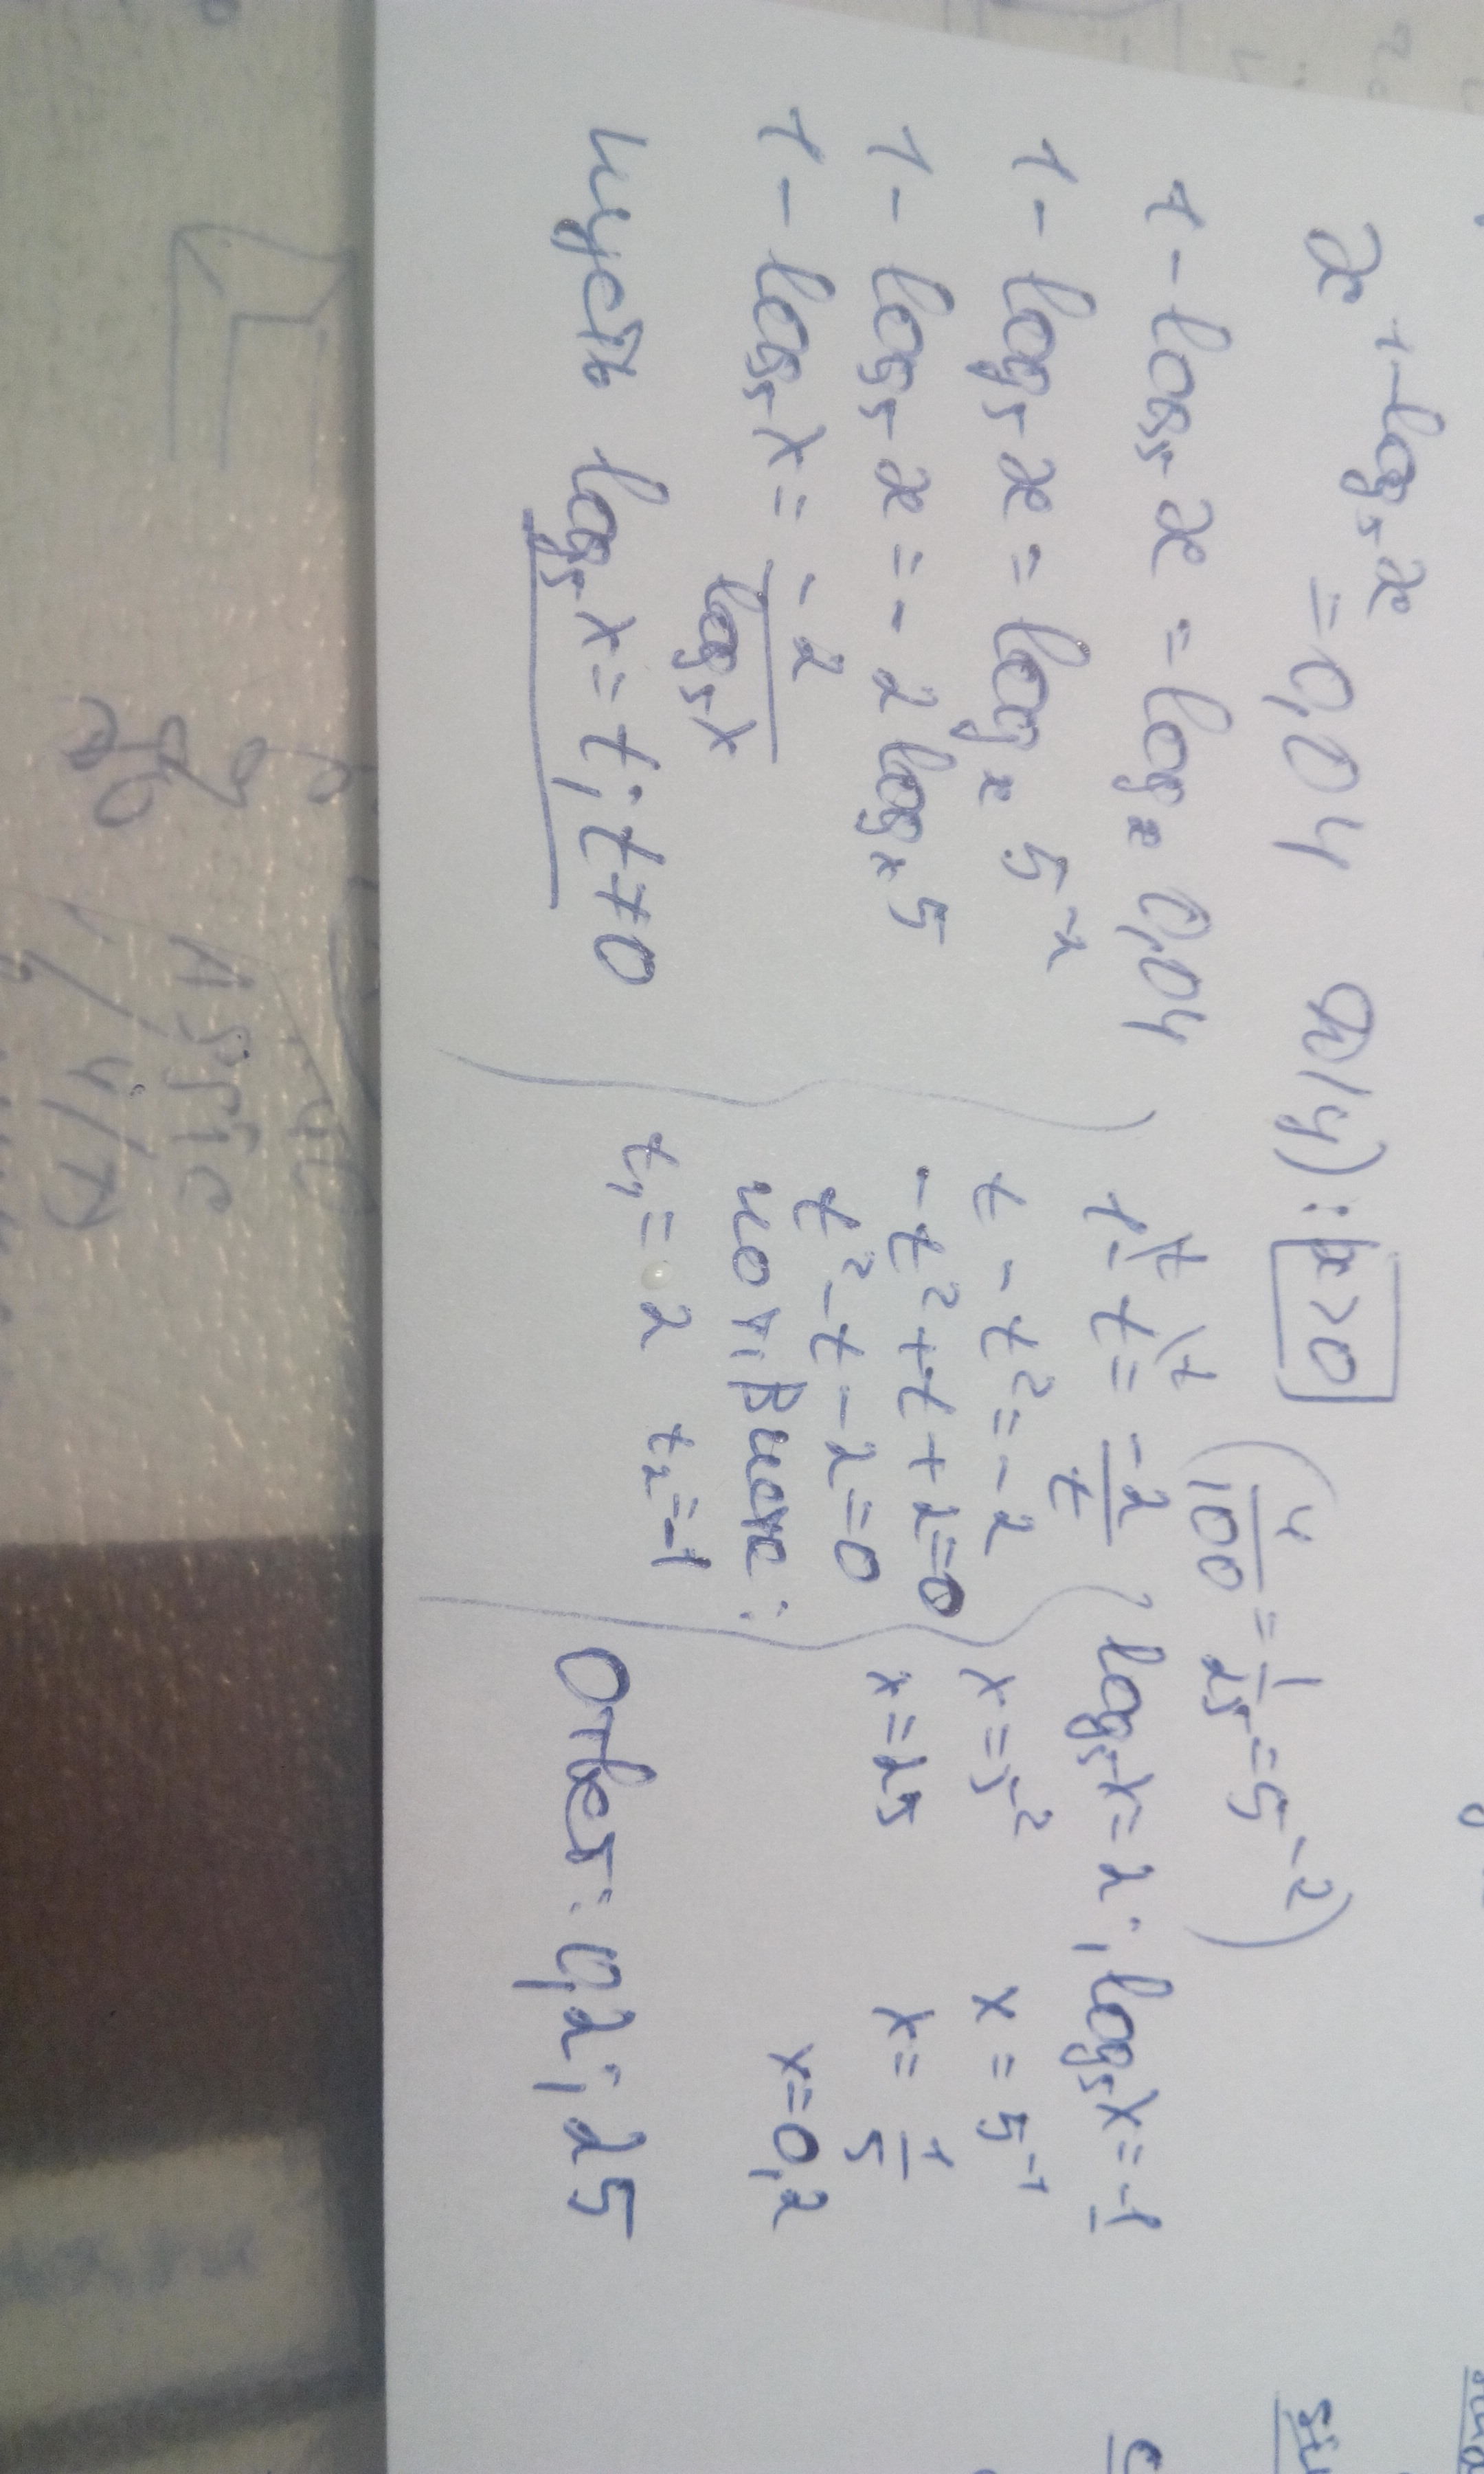 x^{1-log_5 x} = 0,04    ОДЗ: x>0
(4/100 = 1/25 = 5^{-2})
1 - log_5 x = log_x 0,04
1 - log_5 x = log_x 5^{-2}
1 - log_5 x = -2 log_x 5
1 - log_5 x = -2/log_5 x
пусть log_5 x = t; t≠0
1^{\t} - t^{\t} = -2/t
t - t² = -2
-t² + t + 2 = 0
t² - t - 2 = 0
по т. Виета:
t_1 = 2    t_2 = -1
log_5 x = 2; log_5 x = -1
x = 5²    x = 5^{-1}
x = 25    x = 1/5
x = 0,2
Ответ: 0,2; 25